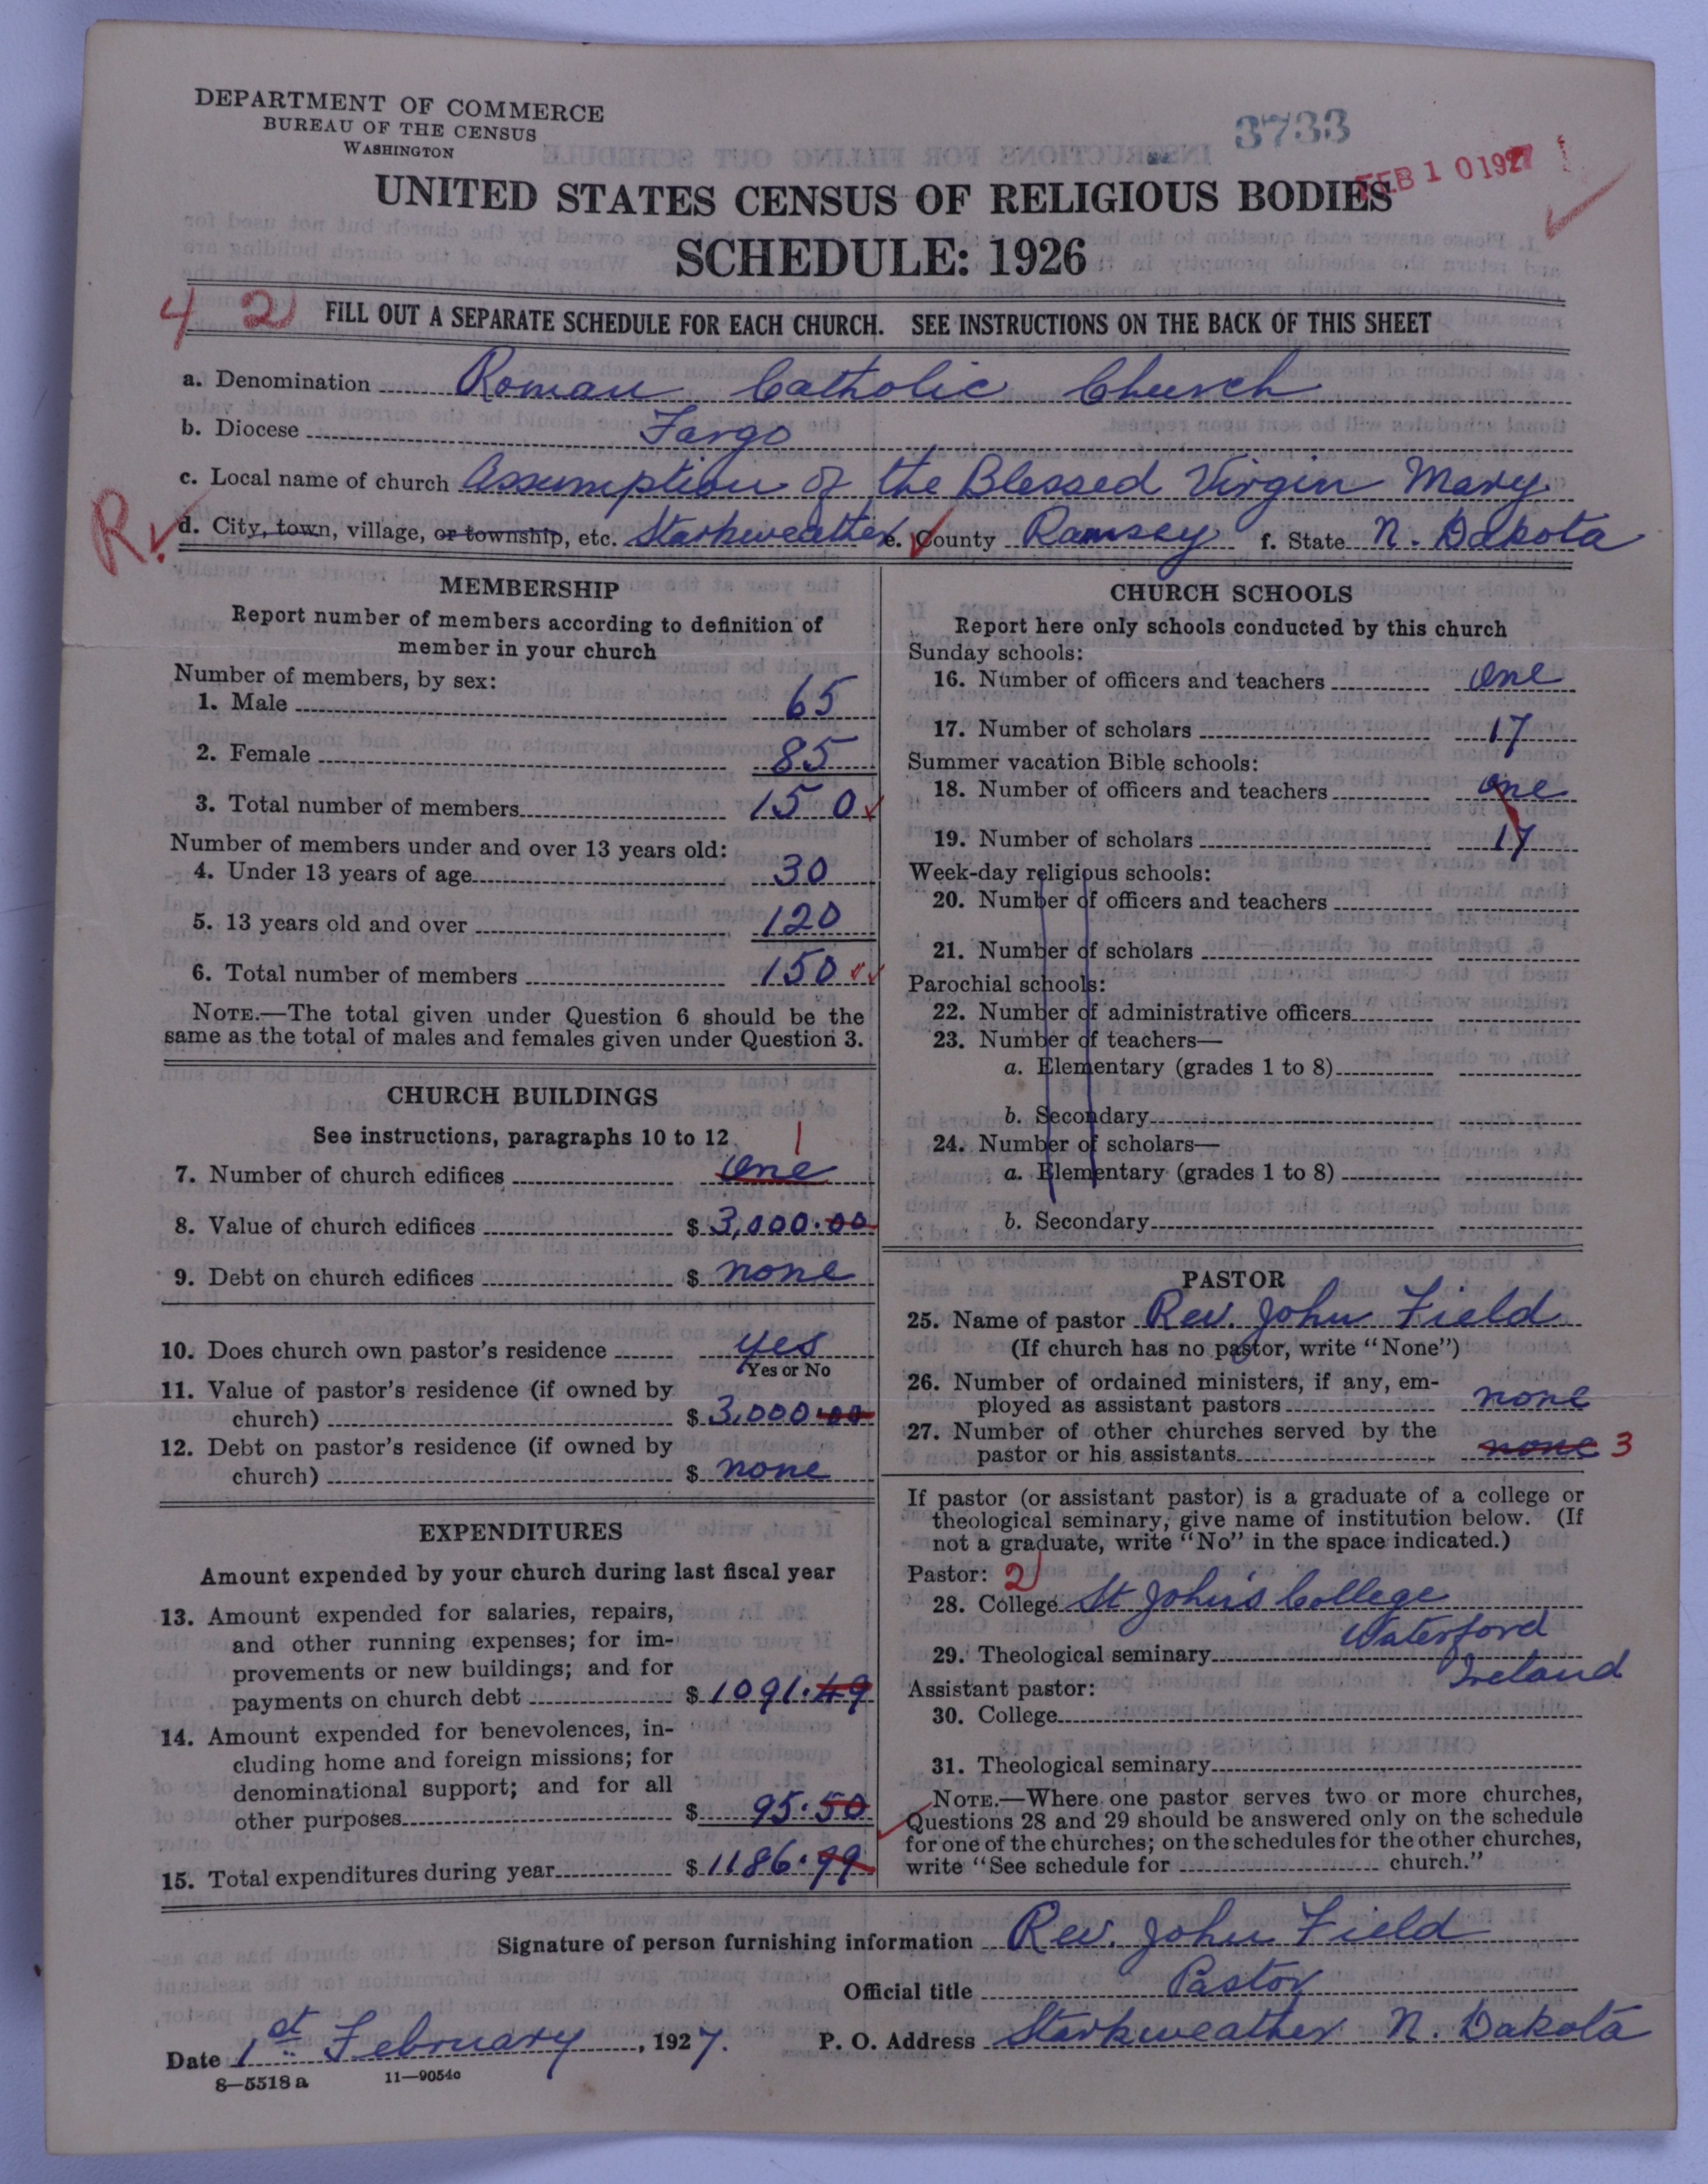 DEPARTMENT OF COMMERCE
BUREAU OF THE CENSUS
WASHINGTON
3733
FEB 10 1927
UNITED STATES CENSUS OF RELIGIOUS BODIES
SCHEDULE: 1926
4 2
FILL OUT A SEPARATE SCHEDULE FOR EACH CHURCH. SEE INSTRUCTIONS ON THE BACK OF THIS SHEET
a. Denomination Roman Catholic Church
b. Diocese Fargo
c. Local name of church Assumption of the Blessed Virgin Mary.
R d. City, town, village, or township, etc. Starkweather e. County Ramsey f. State N. Dakota
MEMBERSHIP
Report number of members according to definition of
member in your church
Number of members, by sex:
1. Male 65
2. Female 85
3. Total number of members 150
Number of members under and over 13 years old:
4. Under 13 years of age 30
5. 13 years old and over 120
6. Total number of members 150
NOTE.—The total given under Question 6 should be the
same as the total of males and females given under Question 3.
CHURCH BUILDINGS
See instructions, paragraphs 10 to 12
1
7. Number of church edifices one
8. Value of church edifices $ 3,000.00
9. Debt on church edifices $ none
10. Does church own pastor's residence yes
Yes or No
11. Value of pastor's residence (if owned by
church) $ 3,000.00
12. Debt on pastor's residence (if owned by
church) $ none
EXPENDITURES
Amount expended by your church during last fiscal year
13. Amount expended for salaries, repairs,
and other running expenses; for im-
provements or new buildings; and for
payments on church debt $ 1091.49
14. Amount expended for benevolences, in-
cluding home and foreign missions; for
denominational support; and for all
other purposes $ 95.50
15. Total expenditures during year $ 1186.99
CHURCH SCHOOLS
Report here only schools conducted by this church
Sunday schools:
16. Number of officers and teachers one
17. Number of scholars 17
Summer vacation Bible schools:
18. Number of officers and teachers one
19. Number of scholars 17
Week-day religious schools:
20. Number of officers and teachers
21. Number of scholars
Parochial schools:
22. Number of administrative officers
23. Number of teachers—
a. Elementary (grades 1 to 8)
b. Secondary
24. Number of scholars—
a. Elementary (grades 1 to 8)
b. Secondary
PASTOR
25. Name of pastor Rev. John Field
(If church has no pastor, write "None")
26. Number of ordained ministers, if any, em-
ployed as assistant pastors none
27. Number of other churches served by the
pastor or his assistants none 3
If pastor (or assistant pastor) is a graduate of a college or
theological seminary, give name of institution below. (If
not a graduate, write "No" in the space indicated.)
Pastor: 2
28. College St John's College
Waterford
29. Theological seminary
Ireland
Assistant pastor:
30. College
31. Theological seminary
NOTE.—Where one pastor serves two or more churches,
Questions 28 and 29 should be answered only on the schedule
for one of the churches; on the schedules for the other churches,
write "See schedule for church."
Signature of person furnishing information Rev. John Field
Official title Pastor
Date 1st February, 1927. P. O. Address Starkweather N. Dakota
8—5518 a 11—9054c